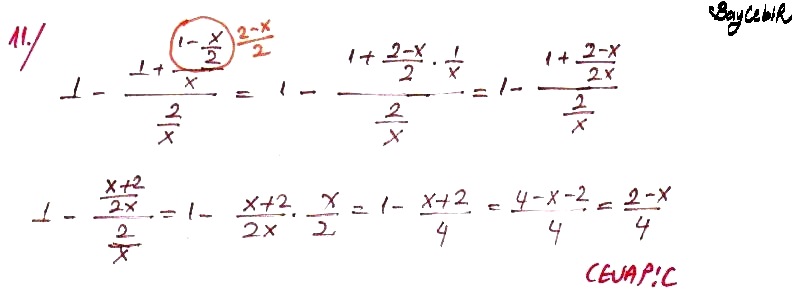 BayCebiR
11./ 1 - \frac{1+\frac{1-\frac{x}{2}}{x}}{\frac{2}{x}} \frac{2-x}{2} = 1 - \frac{1+\frac{2-x}{2}\cdot\frac{1}{x}}{\frac{2}{x}} = 1 - \frac{1+\frac{2-x}{2x}}{\frac{2}{x}}
1 - \frac{\frac{x+2}{2x}}{\frac{2}{x}} = 1 - \frac{x+2}{2x} \cdot \frac{x}{2} = 1 - \frac{x+2}{4} = \frac{4-x-2}{4} = \frac{2-x}{4}
CEVAP:C